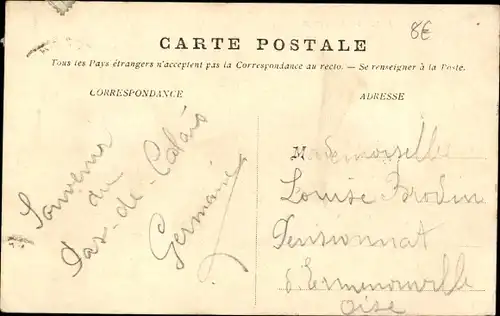 8€
CARTE POSTALE
Tous les Pays étrangers n'acceptent pas la Correspondance au recto. — Se renseigner à la Poste.
CORRESPONDANCE
Souvenir
du
Pas-de-Calais
Germaine
ADRESSE
Mademoiselle
Louise Brodin
Pensionnat
d'Ermenonville
Oise